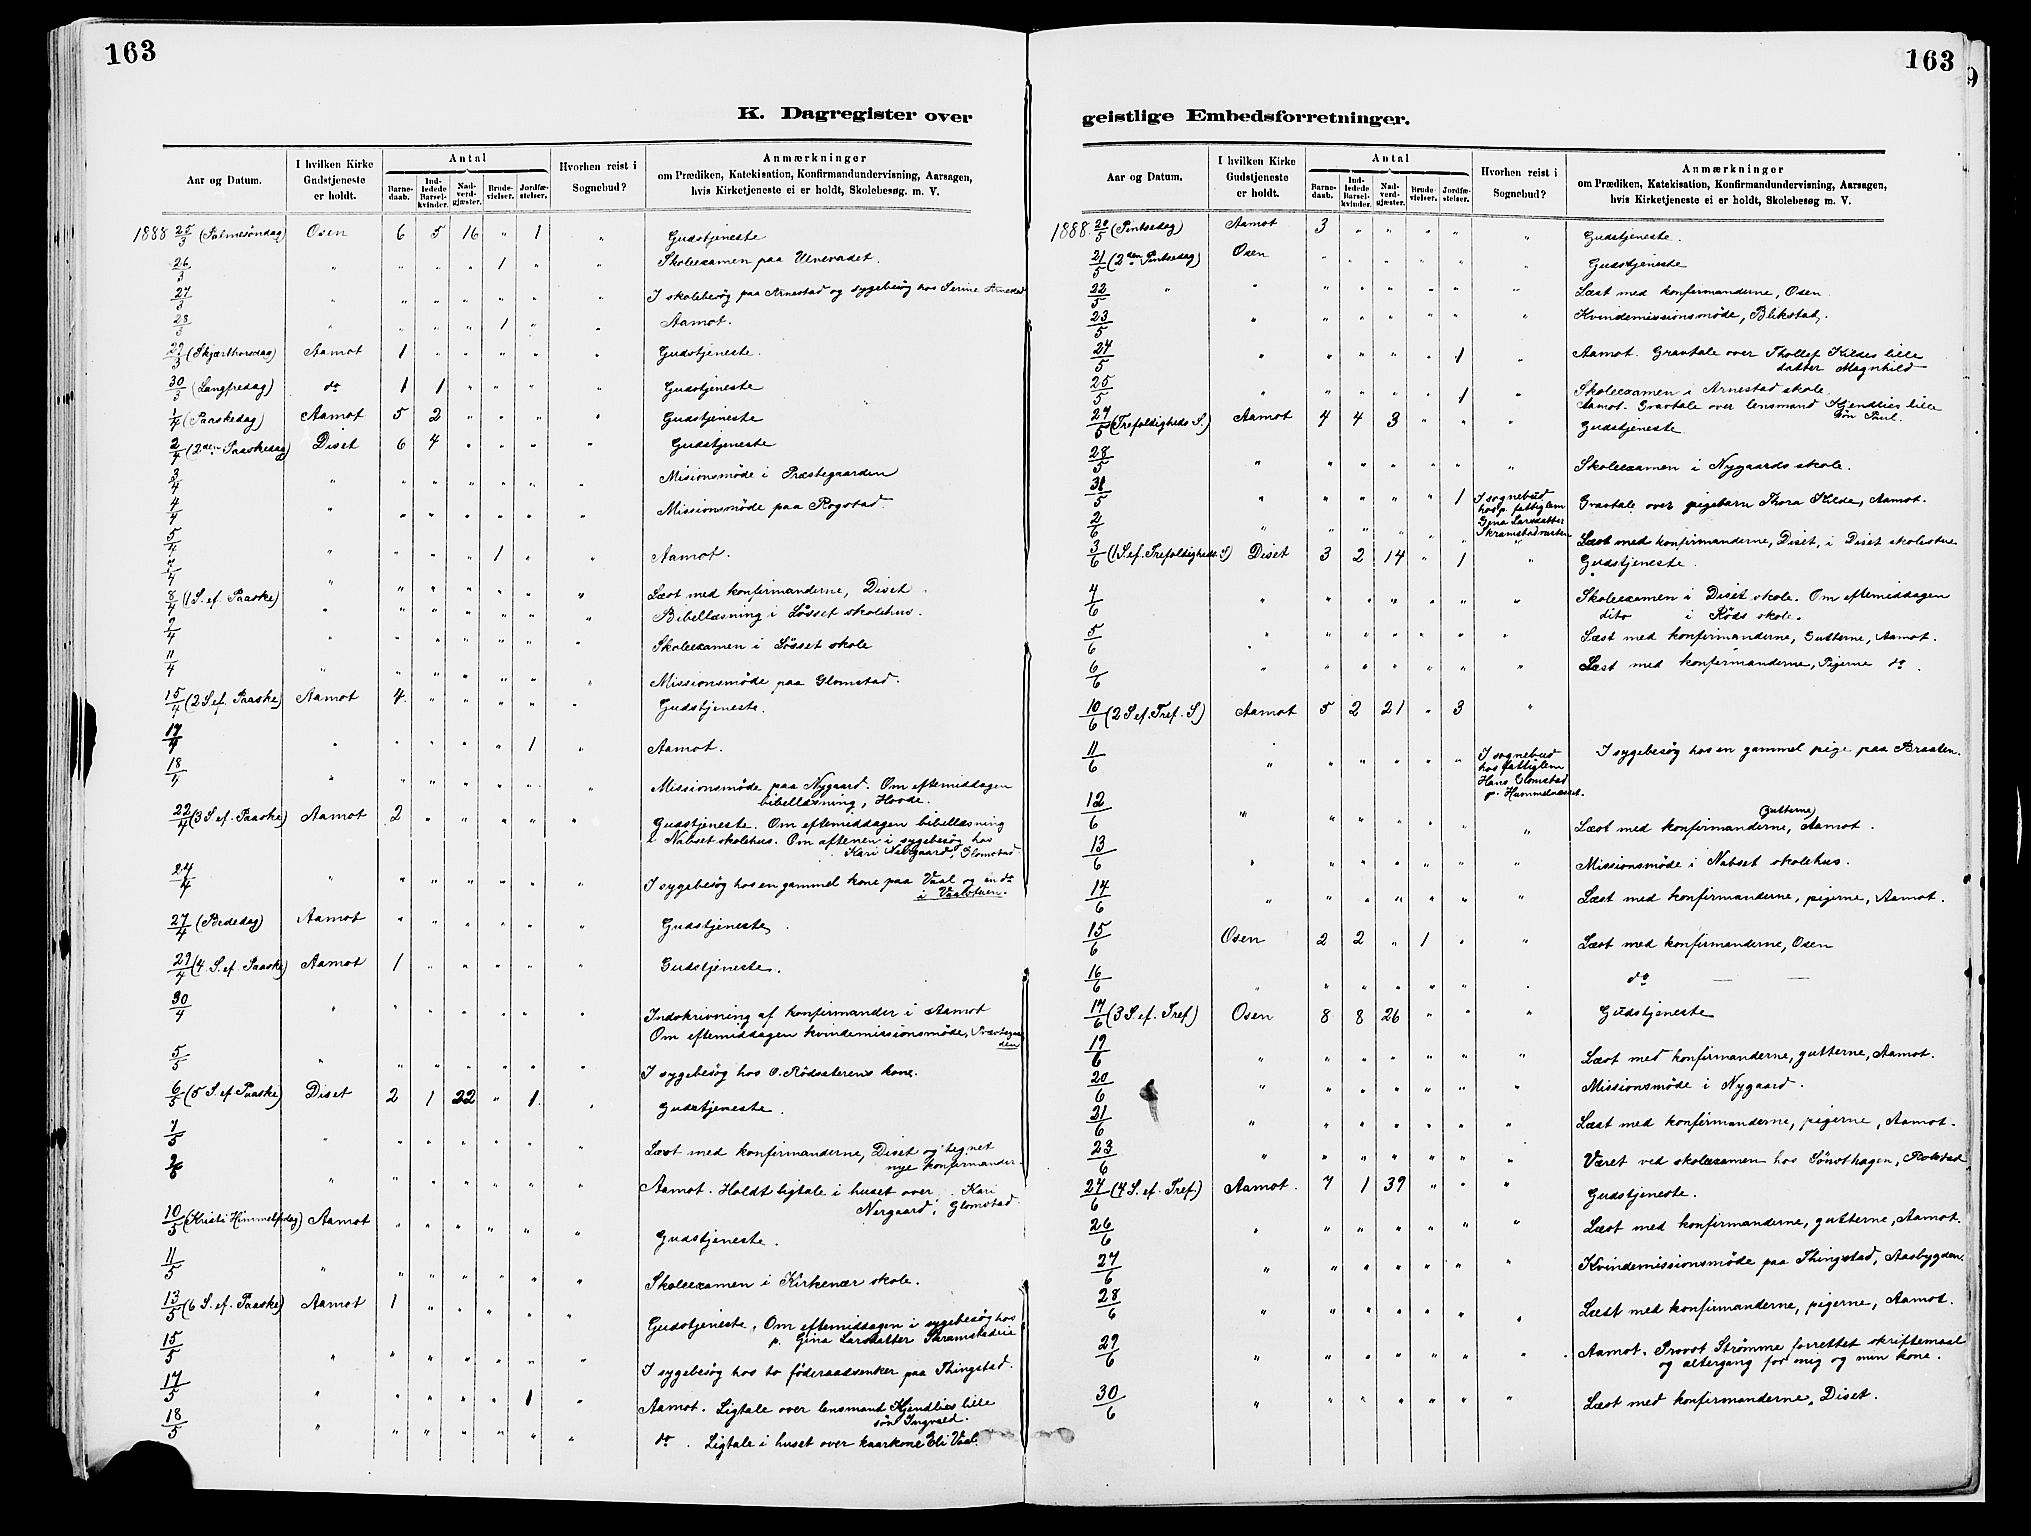 163
K. Dagregister over
Aar og Datum.
I hvilken Kirke Gudstjeneste er holdt.
Antal
Barne-daab.
Ind-ledede Barsel-kvinder.
Nad-verd-gjæster.
Brude-vielser.
Jordfæ-stelser.
Hvorhen reist i Sognebud?
Anmærkninger
om Prædiken, Katekisation, Konfirmandundervisning, Aarsagen,
hvis Kirketjeneste ei er holdt, Skolebesøg m. V.
1888 25/3 (Palmesöndag) Osen 6 5 16 " 1 " Gudstjeneste
26/3 " " " " 1 " " Skoleexamen paa Ulvevadet.
27/3 " " " " " " I skolebesög paa Arnestad og sygebesög hos Serine Arnestad
28/3 " " " " 1 " " Aamot.
29/3 (Skjærthorsdag) Aamot 1 " " " " Gudstjeneste.
30/3 (Langfredag) do 1 1 " " " Gudstjeneste
1/4 (Paaskedag) Aamot 5 2 " " " " Gudstjeneste
2/4 (2den Paaskedag) Diset 6 4 " " " " Gudstjeneste
3/4 " " " " " " " Missionsmöde i Præstegaarden
4/4 " " " " " " " Missionsmöde paa Rogstad.
5/4 " " " " 1 " " Aamot.
7/4 " " " " " " " Læst med konfirmanderne, Diset.
8/4 (1 S. ef. Paaske) " " " " " " " Bibellæsning i Lösset skolehus.
9/4 " " " " " " " Skoleexamen i Lösset skole
11/4 " " " " " " " Missionsmöde paa Glomstad.
15/4 (2 S. ef. Paaske) Aamot 4 " " " " " Gudstjeneste.
17/4 " " " " " 1 " Aamot.
18/4 " " " " " " " Missionsmöde paa Nygaard. Om eftemiddagen
bibellæsning, Hovde.
22/4 (3 S. ef. Paaske) Aamot 2 " " " " " Gudstjeneste. Om eftemiddagen bibellæsning
i Nabset skolehus. Om aftenen i sygebesög hos
Kari Nergaard, Glomstad
24/4 " " " " " " " I sygebesög hos en gammel kone paa Vaal og en do
i Vaalstuen.
27/4 (Bededag) Aamot " " " " " " Gudstjeneste
29/4 (4 S. ef. Paaske) Aamot 1 " " " " " Gudstjeneste.
30/4 " " " " " " " Indskrivning af konfirmander i Aamot
Om eftemiddagen kvindemissionsmöde, Præstegaar
den
5/5 " " " " " " " I sygebesög hos O. Rödsæterens kone.
6/5 (5 S. ef Paaske) Diset 2 1 22 " 1 " Gudstjeneste.
7/5 " " " " " " " Læst med konfirmanderne, Diset og tegnet
nye konfirmander.
" " " " " " " Aamot. Holdt ligtale i huset over Kari
Nergaard, Glomstad.
10/5 (Kristi Himmelfdag) Aamot " " " " " " Gudstjeneste.
11/5 " " " " " " " Skoleexamen i Kirkenær skole.
13/5 (6 S. ef. Paaske) Aamot 1 " " " " " Gudstjeneste. Om eftemiddagen i sygebesög hos
p. Gina Larsdatter
15/5 " " " " " " " I sygebesög hos to föderaadsenker paa Thingstad.
17/5 " " " " " 1 " Aamot. Ligtale over lensmand Kjendlies lille
sön Ingvald.
18/5 " " " " " " " do. Ligtale i huset over kaarkone Eli Vaal
163
geistlige Embedsforretninger.
Aar og Datum.
I hvilken Kirke Gudstjeneste er holdt.
Antal
Barne-daab.
Ind-ledede Barsel-kvinder.
Nad-verd-gjæster.
Brude-vielser.
Jordfæ-stelser.
Hvorhen reist i Sognebud?
Anmærkninger
om Prædiken, Katekisation, Konfirmandundervisning, Aarsagen,
hvis Kirketjeneste ei er holdt, Skolebesøg m. V.
1888. 20/5 (Pintsedag) Aamot 3 " " " " " Gudstjeneste.
21/5 (2den Pintsedag) Osen " " " " " " Gudstjeneste
22/5 " " " " " " " Læst med konfirmanderne, Osen
23/5 " " " " " " " Kvindemissionsmöde, Blikstad.
24/5 " " " " " 1 " Aamot. Gravtale over Thollef Kildes lille
datter Magnhild
25/5 " " " " " 1 " Skoleexamen i Arnestad skole.
Aamot. Gravtale over lensmand Kjendlies lille
sön Paul.
27/5 (Trefoldigheds S.) Aamot 4 4 3 " " " Gudstjeneste
28/5 " " " " " " " Skoleexamen i Nygaards skole.
31/5 " " " " " 1 I sognebud Gravtale over pigebarn Thora Kilde, Aamot.
hos p. fattiglem
Gina Larsdatter
2/6 " " " " " " Læst med konfirmanderne, Diset, i Diset skolestue
3/6 (1 S. ef. Trefoldigheds. S) Diset 3 2 14 " 1 " Gudstjeneste.
4/6 " " " " " " " Skoleexamen i Diset skole. Om eftemiddagen
dito i Röds skole.
5/6 " " " " " " " Læst med konfirmanderne, Gutterne, Aamot.
6/6 " " " " " " " Læst med konfirmanderne, Pigerne do.
10/6 (2 S. ef. Tref. S) Aamot 5 2 21 " 3 "
11/6 " " " " " " I sognebud I sygebesög hos en gammel pige paa Braaten.
hos fattiglem
Hans Glomstad
12/6 " " " " " " " Læst med konfirmanderne, Gutterne Aamot.
13/6 " " " " " " " Missionsmöde i Nabset skolehus.
14/6 " " " " " " " Læst med konfirmanderne, pigerne, Aamot.
15/6 Osen 2 2 " 1 " " Læst med konfirmanderne, Osen
16/6 " " " " " " " do — —
17/6 (3 S. ef. Tref) Osen 8 8 26 " " " Gudstjeneste
19/6 " " " " " " " Læst med konfirmanderne, gutterne, Aamot.
20/6 " " " " " " " Missionsmöde i Nygaard.
21/6 " " " " " " " Læst med konfirmanderne, pigerne, Aamot.
23/6 " " " " " " " Været ved skoleexamen hos Sönsthagen, Rokstad
24/6 (4 S. ef. Tref) Aamot. 7 1 39 " " " Gudstjeneste.
26/6 " " " " " " " Læst med konfirmanderne, gutterne, Aamot.
27/6 " " " " " " " Kvindemissionsmöde paa Thingstad, Aasbygden.
28/6 " " " " " " " Læst med konfirmanderne, pigerne, Aamot.
29/6 " " " " " " " Aamot. Provst Strömme forrettet skriftemaal
og altergang for mig og min kone.
30/6 " " " " " " " Læst med konfirmanderne, Diset.